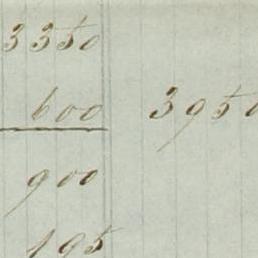 3350
600 3950
900
195